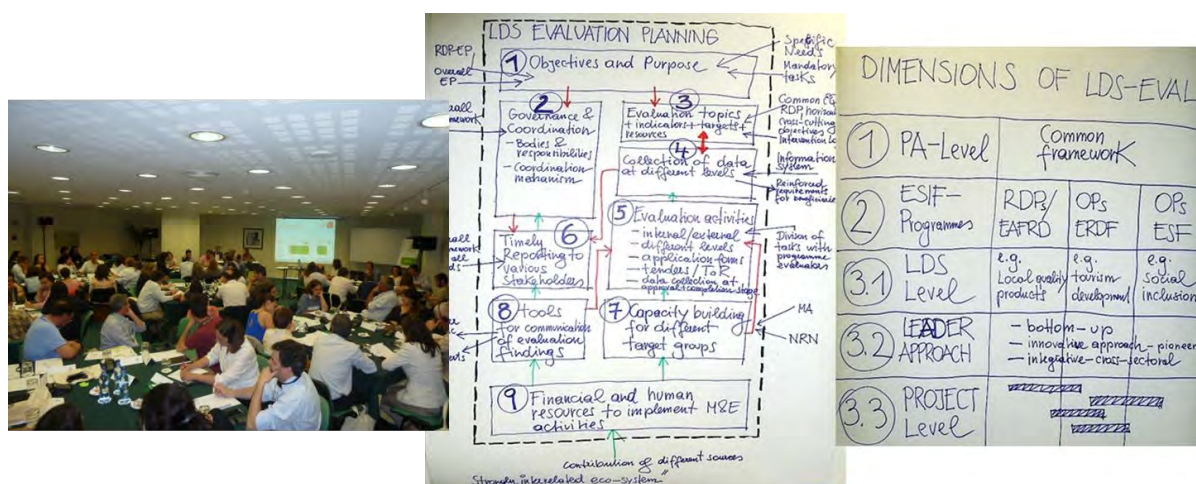 LDS EVALUATION PLANNING
RDP-EP
overall
EP
1 Objectives and Purpose
Specific
Needs
Mandatory
tasks
2
Governance &
Coordination
- Bodies &
responsibilities
- Coordination
mechanism
3
Evaluation topics
+ indicators + targets +
resources
Common EQ
RDP, horizon
cross-cutting
objectives
Intervention lo
4
Collection of data
at different levels
Information
system
Reinforced
requirements
for beneficiaries
5 Evaluation activities
- internal/external
- different levels
- application forms
- tenders/ToR
- data collection at
approval+completion stage
Division of
tasks with
programme
evaluators
6
Timely
Reporting to
various
Stakeholders
7 Capacity building
for different
target groups
MA
NRN
8 tools
for communication
of evaluation
findings
9 Financial and human
resources to implement M&E
activities
contribution of different sources
Strongly interrelated eco-system"
DIMENSIONS OF LDS-EVAL
1 PA-Level
Common
framework
2 ESIF-
Programmes
RDPs/
EAFRD
OPs
ERDF
OPs
ESF
3.1 LDS
Level
e.g.
Local quality
products
e.g.
tourism
development
e.g.
Social
inclusion
3.2 LEADER
APPROACH
- bottom-up
- innovative approach-pioneer
- integrative-cross-sectoral
3.3 PROJECT
Level